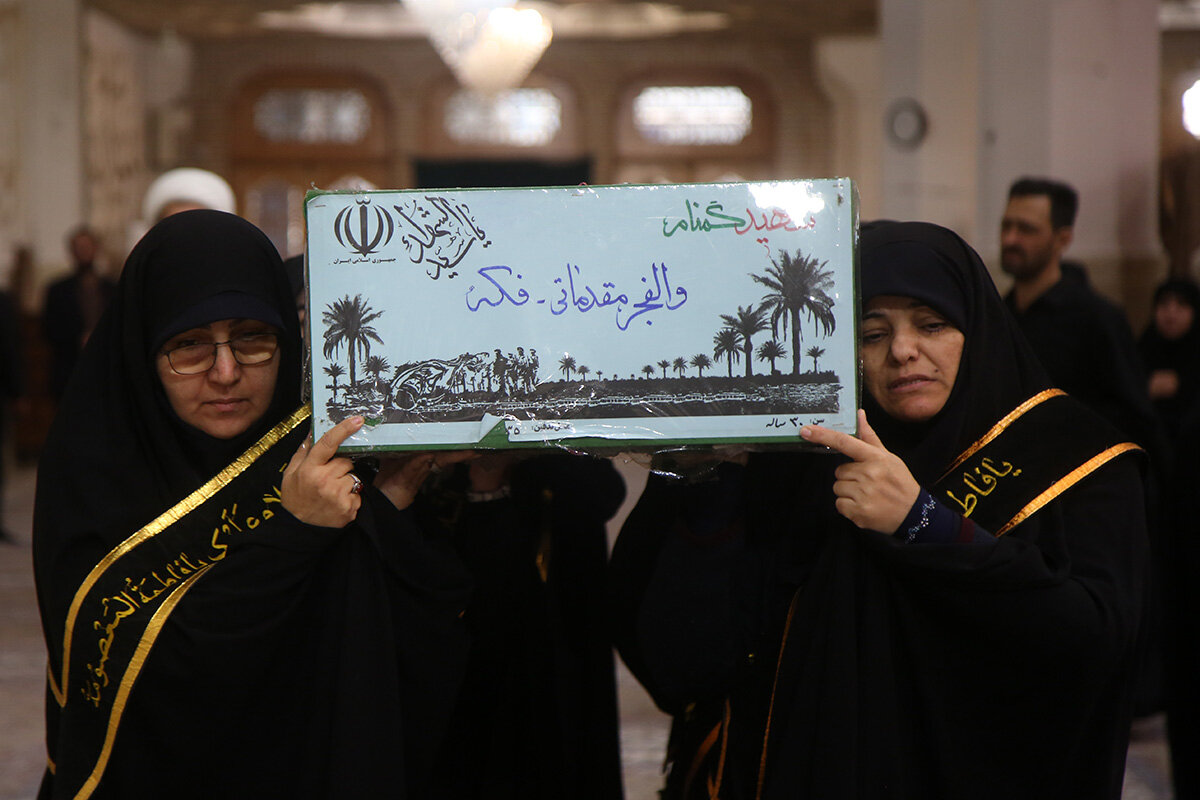 شهید گمنام
یا سیدالشهداء
جمهوری اسلامی ایران
والفجر مقدماتی - فکه
سن: ۳۰ ساله
السلام علیک یا فاطمة المعصومة
یا فاطمة